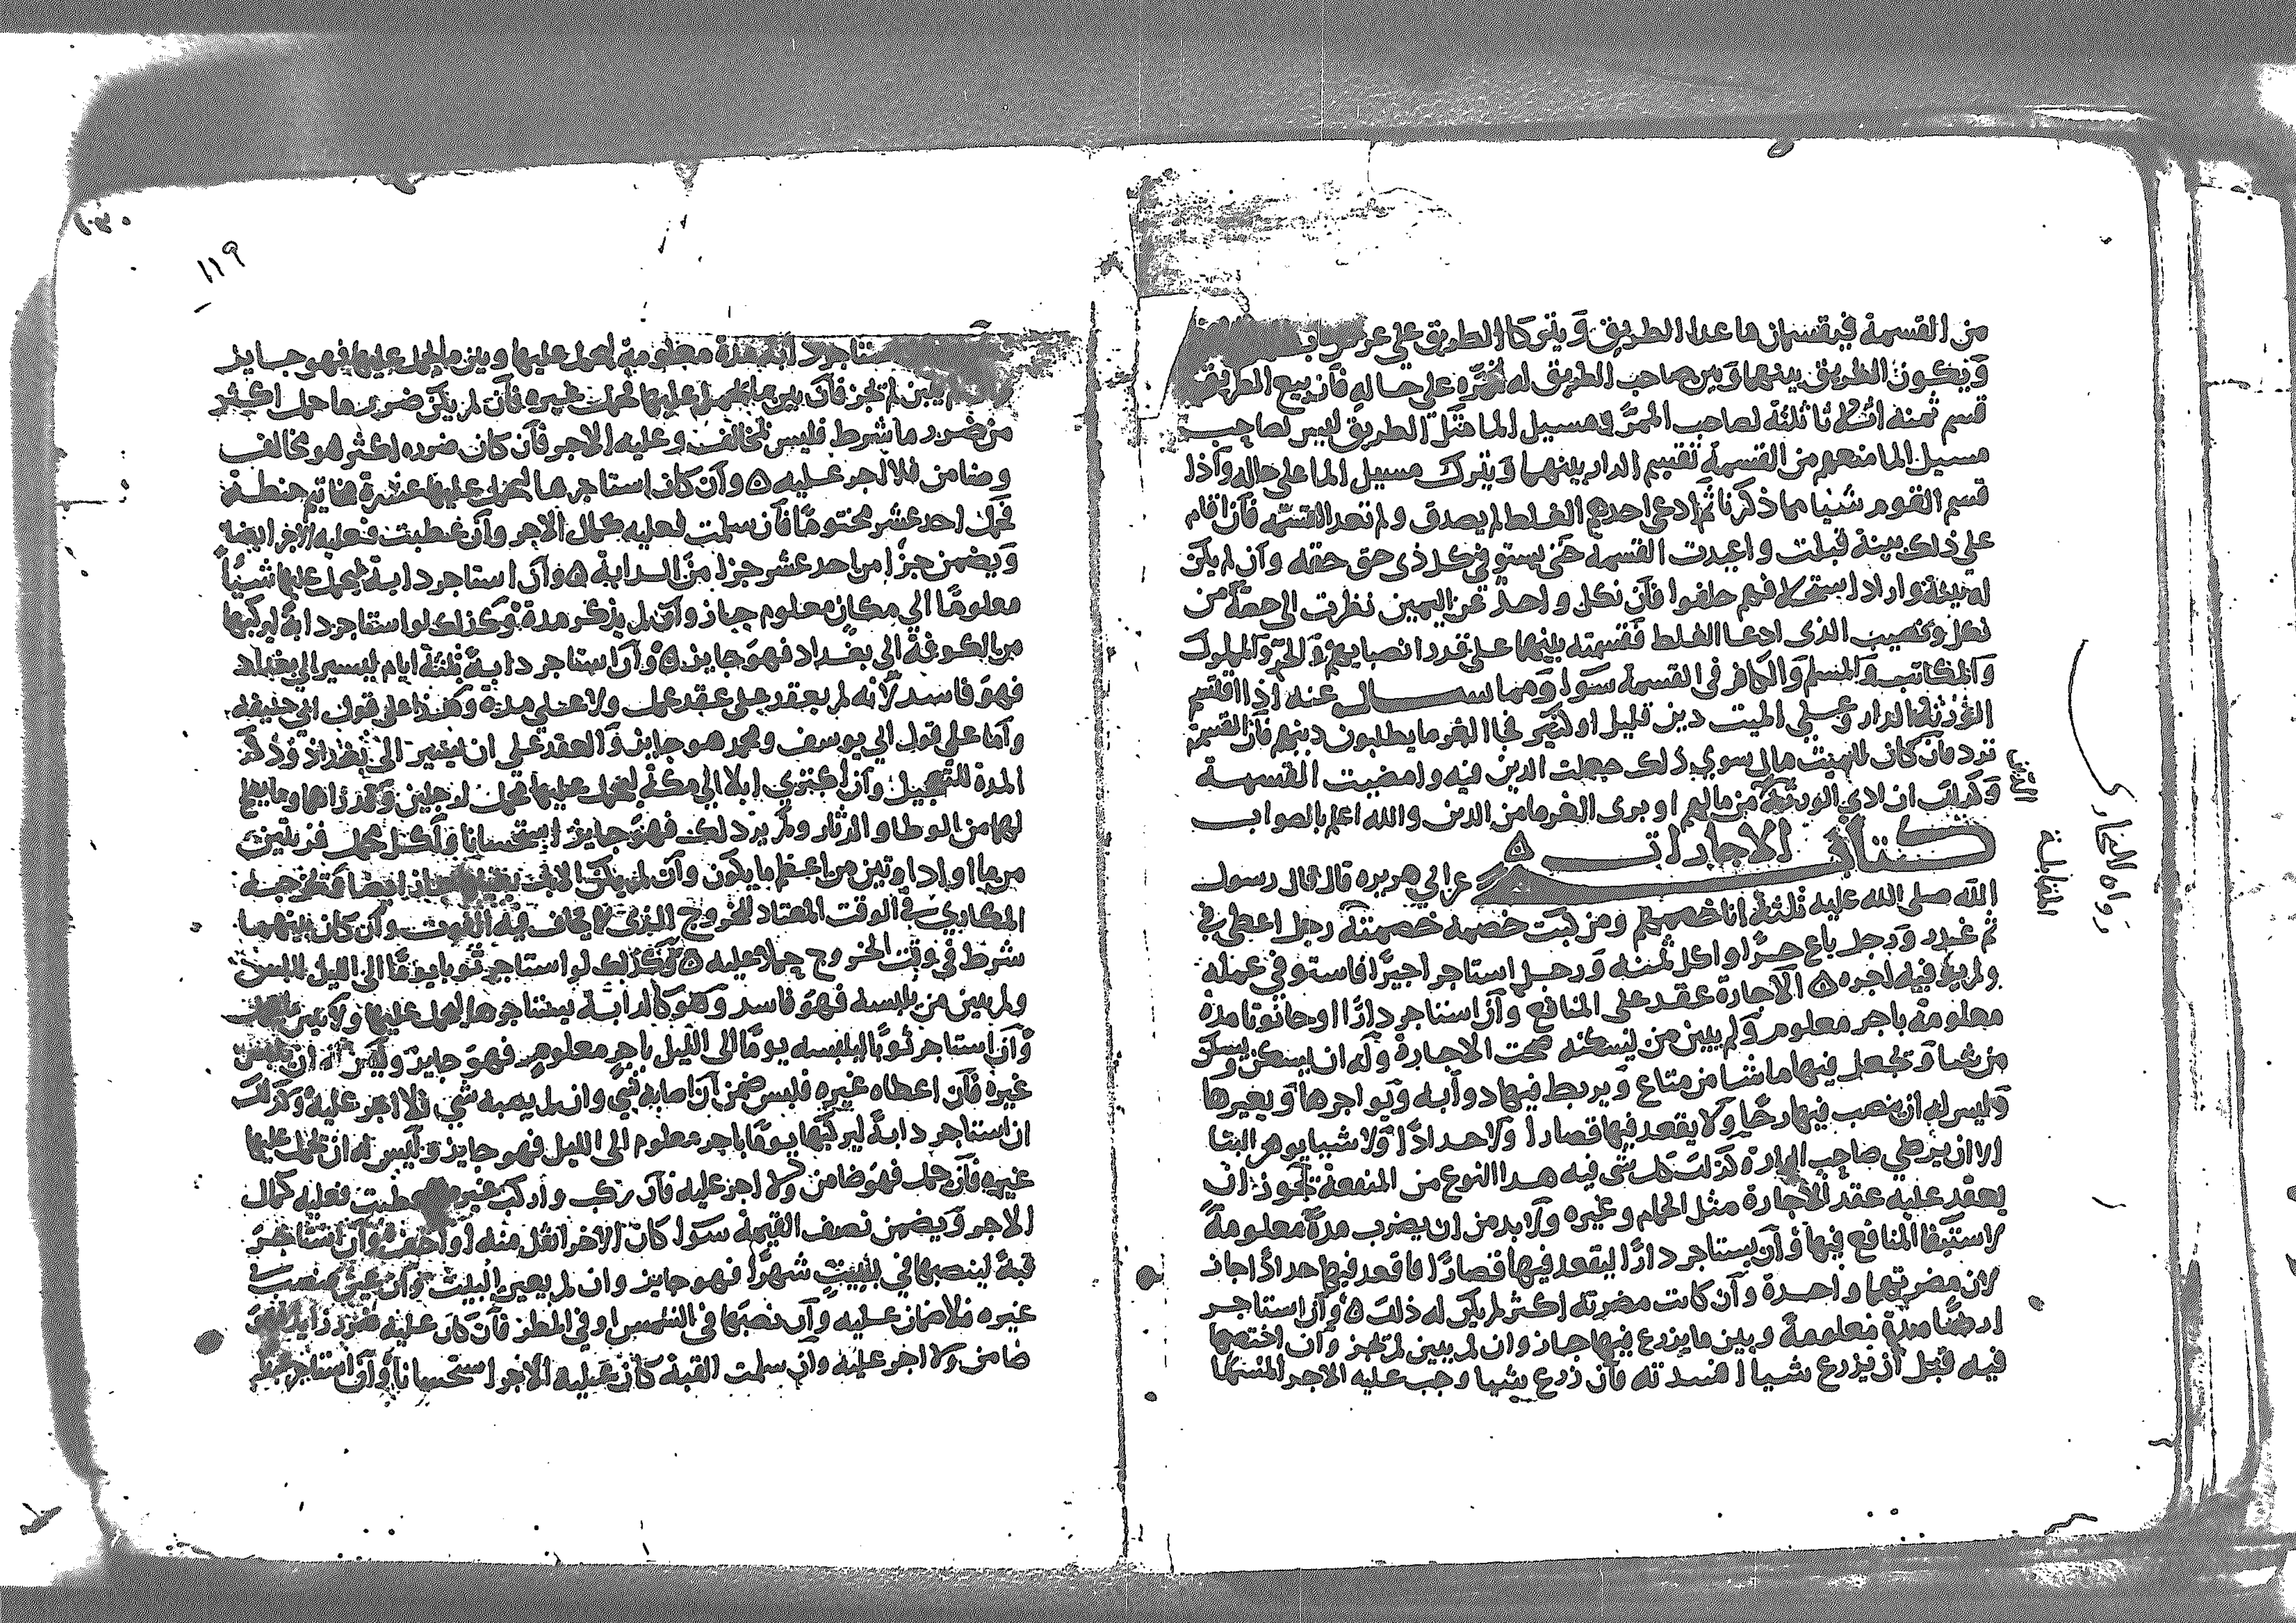 من القسمة فيقسمان ما عدا الطريق ويتركا الطريق على
ويكون الطريق بينهما وبين صاحب الطريق له ممره على حاله فان بيع الطريق
قسم ثمنه اثلاثا ثلثه لصاحب الممر مسيل الما مثل الطريق ليس لصاحب
مسيل الما منعهم من القسمة تقسم الدار بينهما ويترك مسيل الما على حاله واذا
قسم القوم شيا مما ذكرنا ثم ادعى احدهم الغلط لم يصدق ولم تعد القسمة فان اقام
على ذلك بينة قبلت واعيدت القسمة حتى يستوفي كل ذى حق حقه وان لم يكن
له بينة واراد استحلافهم حلفوا فان نكل واحد عن اليمين نظرت الى حصة من
نكل ونصيب الذى ادعا الغلط فقسمته بينهما على قدر انصبايهم والحر والمملوك
والمكاتب والمسلم والكافر فى القسمة سوا ومما سال عنه اذا اقتسم
الورثة الدار وعلى الميت دين قليل او كثير فجا الغرما يطلبون دينهم فان القسمة
ترد فان كان للميت مال سوى ذلك جعلت الدين فيه وامضيت القسمة
وكذلك ان ادى الورثة من مالهم او برى الغرما من الدين والله اعلم بالصواب
كتاب الاجارات ٥
عن ابي هريره قال قال رسول
الله صلى الله عليه ثلثة انا خصمهم ومن كنت خصمه خصمته رجل اعطى بي
ثم غدر ورجل باع حرا واكل ثمنه ورجل استاجر اجيرا فاستوفى عمله
ولم يوفيه اجره ٥ الاجارة عقد على المنافع وان استاجر دارا او حانوتا مدة
معلومة باجر معلوم ولم يبين من يسكنه صحت الاجارة وله ان يسكن ويسكن
من شا ويجعل فيها ما شا من متاع ويربط فيها دوابه ويواجرها ويعيرها
وليس له ان ينصب فيها رحا ولا يقعد فيها قصارا ولا حدادا ولا شيا يوهن البنا
الا ان يرضى صاحب الدار وكذلك كل شى فيه هذا النوع من المنفعة يجوز ان
يعقد عليه عقد الاجارة مثل الحمام وغيره ولا بد من ان يضرب مدة معلومة
لاستيفا المنافع فيها وان يستاجر دارا ليقعد فيها قصارا فاقعد فيها حدادا جاز
لان مضرتهما واحدة وان كانت مضرته اكثر لم يكن له ذلك ٥ وان استاجر
ارضا مدة معلومة وبين ما يزرع فيها جاز وان لم يبين لم تجز وان اختصما
فيه قبل ان يزرع شيا افسدته فان زرع شيها وجب عليه الاجر المسما
رواه البخارى
١١٩
ستاجر دابة مدة معلومة ليحمل عليها وبين ما يحمل عليها فهو جايز
يبين لم تجز فان بين ما يحمل عليها فحمل غيره فان لم يكن ضرر ما حمل اكثر
من ضرر ما شرط فليس بمخالف وعليه الاجر فان كان ضرره اكثر هو مخالف
وضامن فلا اجر عليه ٥ وان كان استاجرها ليحمل عليها عشرة مخاتيم حنطة
فحمل احد عشر مختوما فان سلمت فعليه كمال الاجر وان عطبت فعليه الاجر ايضا
ويضمن جزا من احد عشر جزا من الدابة ٥ وان استاجر دابة ليحمل عليها شيا
معلوما الى مكان معلوم جاز وان لم يذكر مدة وكذلك لو استاجر دابة ليركبها
من الكوفة الى بغداد فهو جايز ٥ وان استاجر دابة ثلثة ايام ليسير الى بغداد
فهو فاسد لانه لم يعقد على عقد عمل ولا على مدة وهذا على قول ابي حنيفة
واما على قول ابي يوسف ومحمد هو جايز والعقد على ان يسير الى بغداد وذكر
المدة للتعجيل وان اكترى ابلا الى مكة ليحمل عليها محمل لرجلين وقدر زاهما وما يصلح
لهما من الوطا والدثار ولم ير ذلك فهو جايز استحسانا ولكل محمل قربتين
من ما او اداوتين من اعظم ما يكون وان لم جاز ايضا وتخرجه
المكاري في الوقت المعتاد للخروج الذى لا يخاف فيه الفوت وان كان بينهما
شرط فى وقت الخروج حملا عليه ٥ وكذلك لو استاجر ثوبا يوما الى الليل للبس
ولم يبين من يلبسه فهو فاسد وهو كالدابة يستاجرها ليحمل عليها ولا يبين
وان استاجر ثوبا ليلبسه يوما الى الليل باجر معلوم فهو جايز وليس له ان يلبس
غيره فان اعطاه غيره فلبس ضمن ان اصابه شي وان لم يصبه شي فلا اجر عليه وكذلك
ان استاجر دابة ليركبها يوما باجر معلوم الى الليل فهو جايز وليس له ان يحمل عليها
غيره فان حمل فهو ضامن ولا اجر عليه فان ركب واركب غيره عطبت فعليه كمال
الاجر ويضمن نصف القيمة سوا كان الاخر اثقل منه او اخف وان استاجر
قبة لينصبها في بيت شهرا فهو جايز وان لم يعين البيت وان عين فنصب في
غيره فلا ضمان عليه وان نصبها فى الشمس او فى المطر فان كان عليه ضرر زايد فهو
ضامن ولا اجر عليه وان سلمت القبة كان عليه الاجر استحسانا وان استاجر